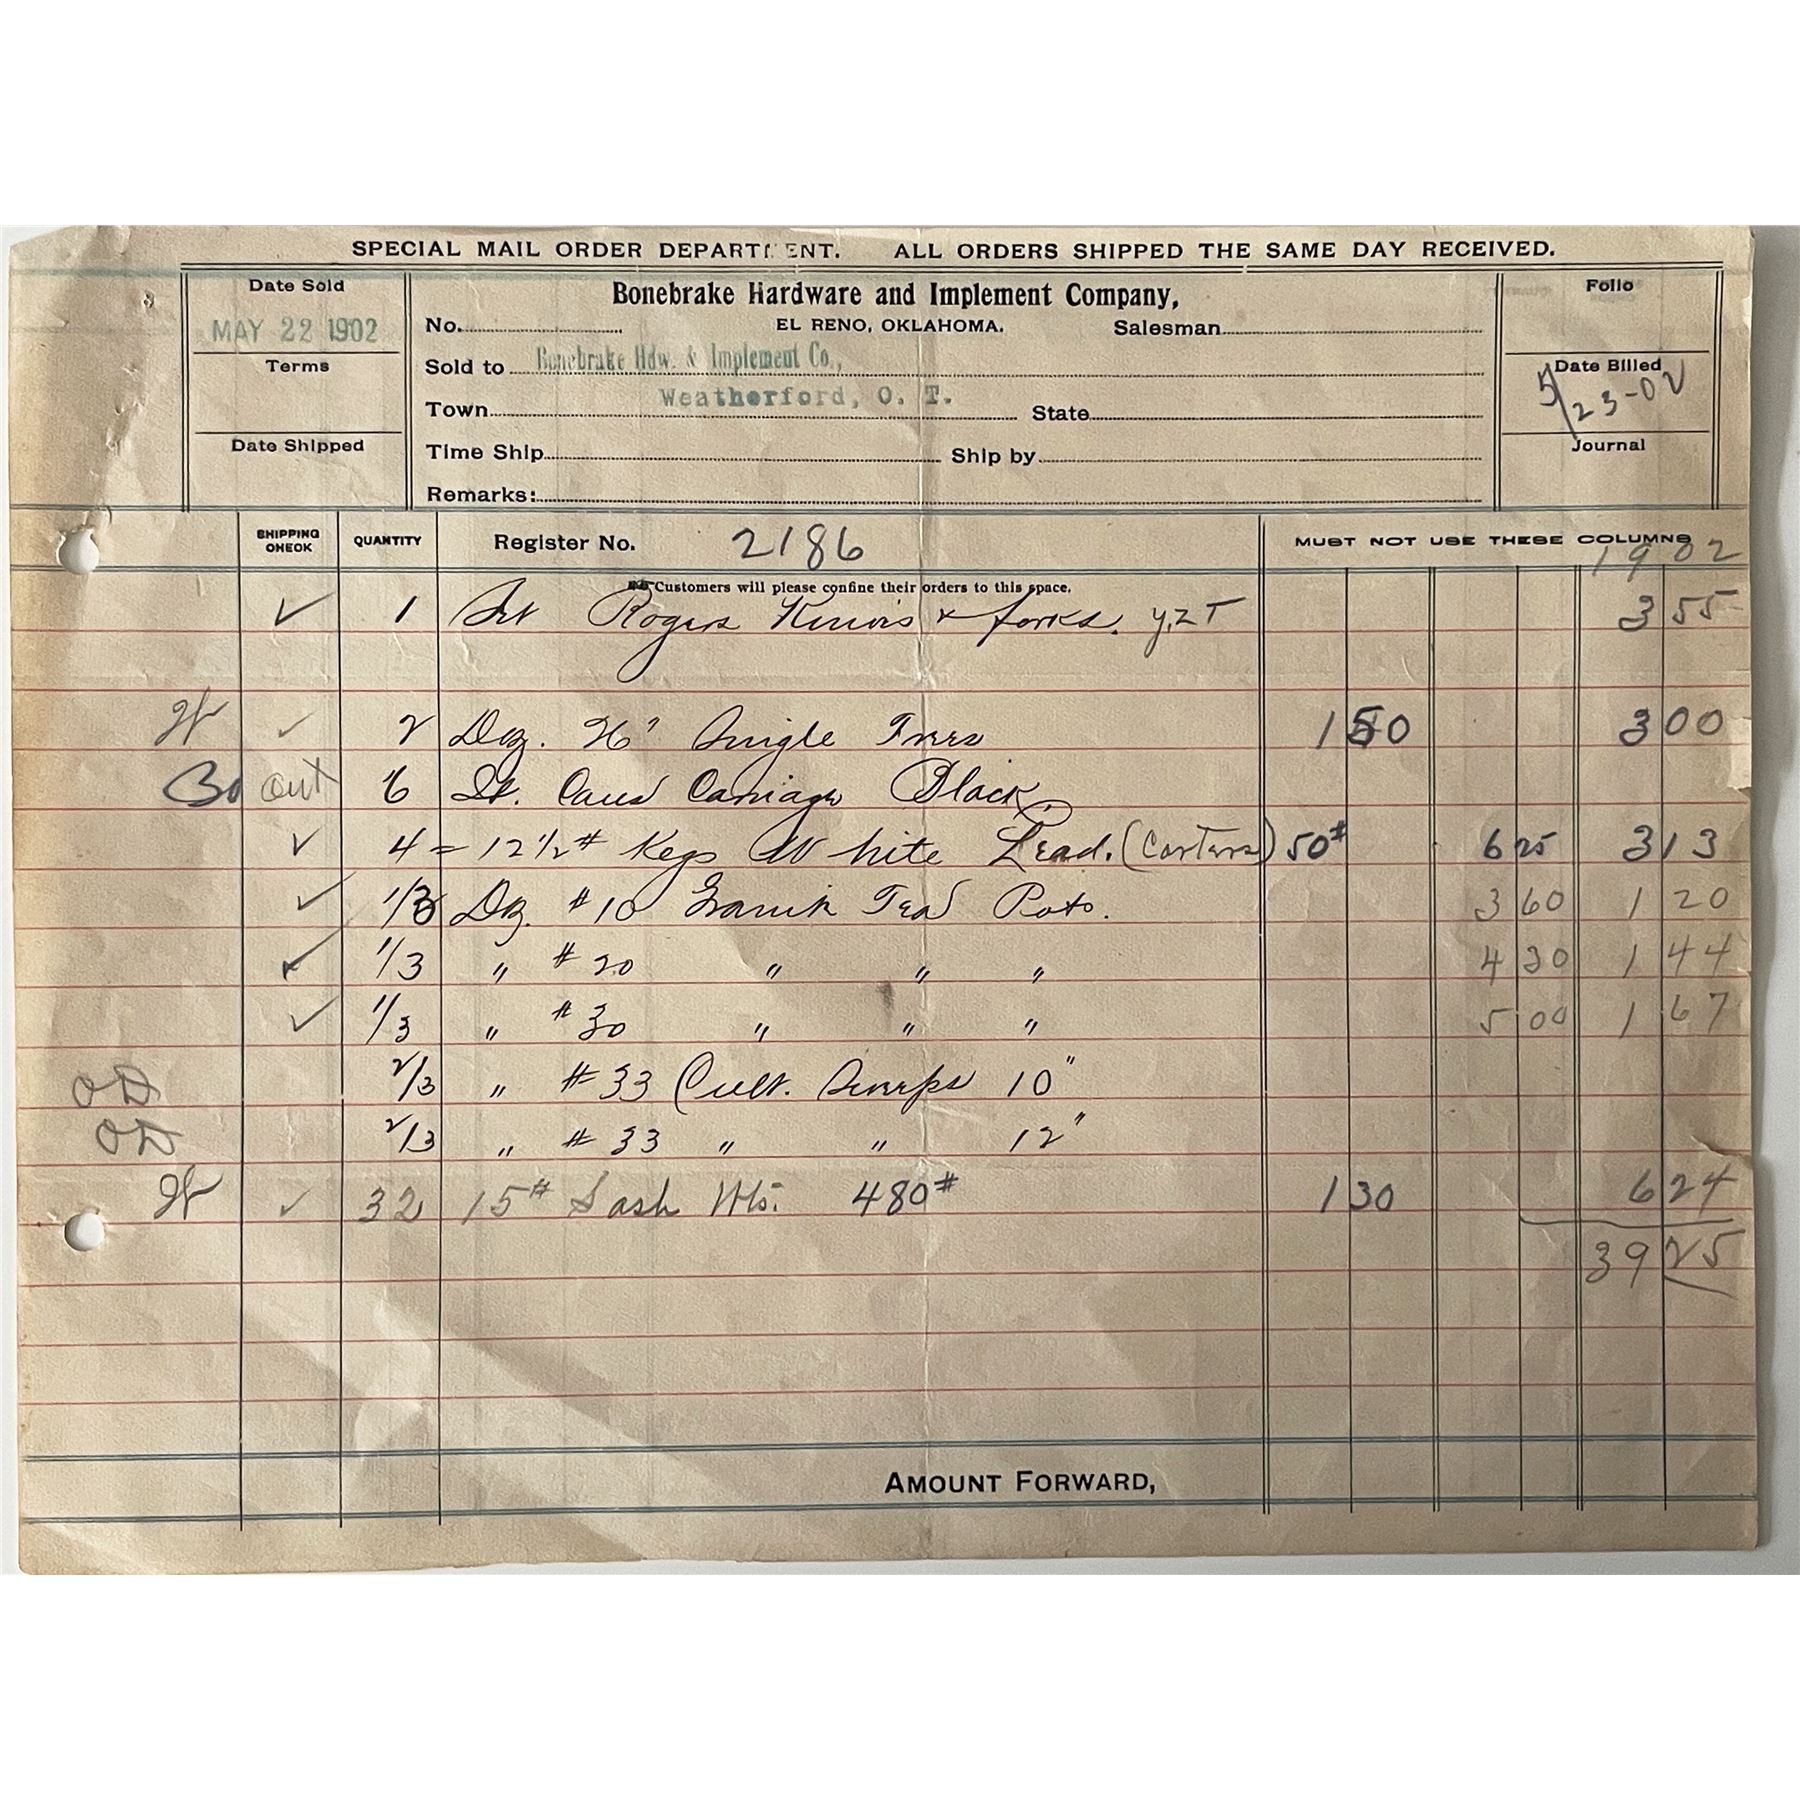 SPECIAL MAIL ORDER DEPARTMENT. ALL ORDERS SHIPPED THE SAME DAY RECEIVED.
Date Sold
MAY 22 1902
Terms
Date Shipped
Bonebrake Hardware and Implement Company,
No. EL RENO, OKLAHOMA. Salesman
Sold to Bonebrake Hdw. & Implement Co.,
Town Weatherford, O. T. State
Time Ship Ship by
Remarks:
Folio
Date Billed
5/23-02
Journal
SHIPPING CHECK QUANTITY Register No. 2186 MUST NOT USE THESE COLUMNS
1902
Customers will please confine their orders to this space.
✓ 1 Set Rogers Knives & forks. 3 55
✓ 2 Doz. 26" Single Trees 1 50 3 00
Bo out 6 Carriage Black.
✓ 4 = 12 1/2 # Kegs White Lead. (Carters) 50# 6 25 3 13
✓ 1/3 Doz. #10 Granit Tea Pots. 3 60 1 20
✓ 1/3 " #20 " " " 4 30 1 44
✓ 1/3 " #30 " " " 5 00 1 67
OD 2/3 " #33 Cult. Sweeps 10"
OD 2/3 " #33 " " 12"
✓ 32 15# Sash Wts. 480# 1 30 6 24
39 25
AMOUNT FORWARD,